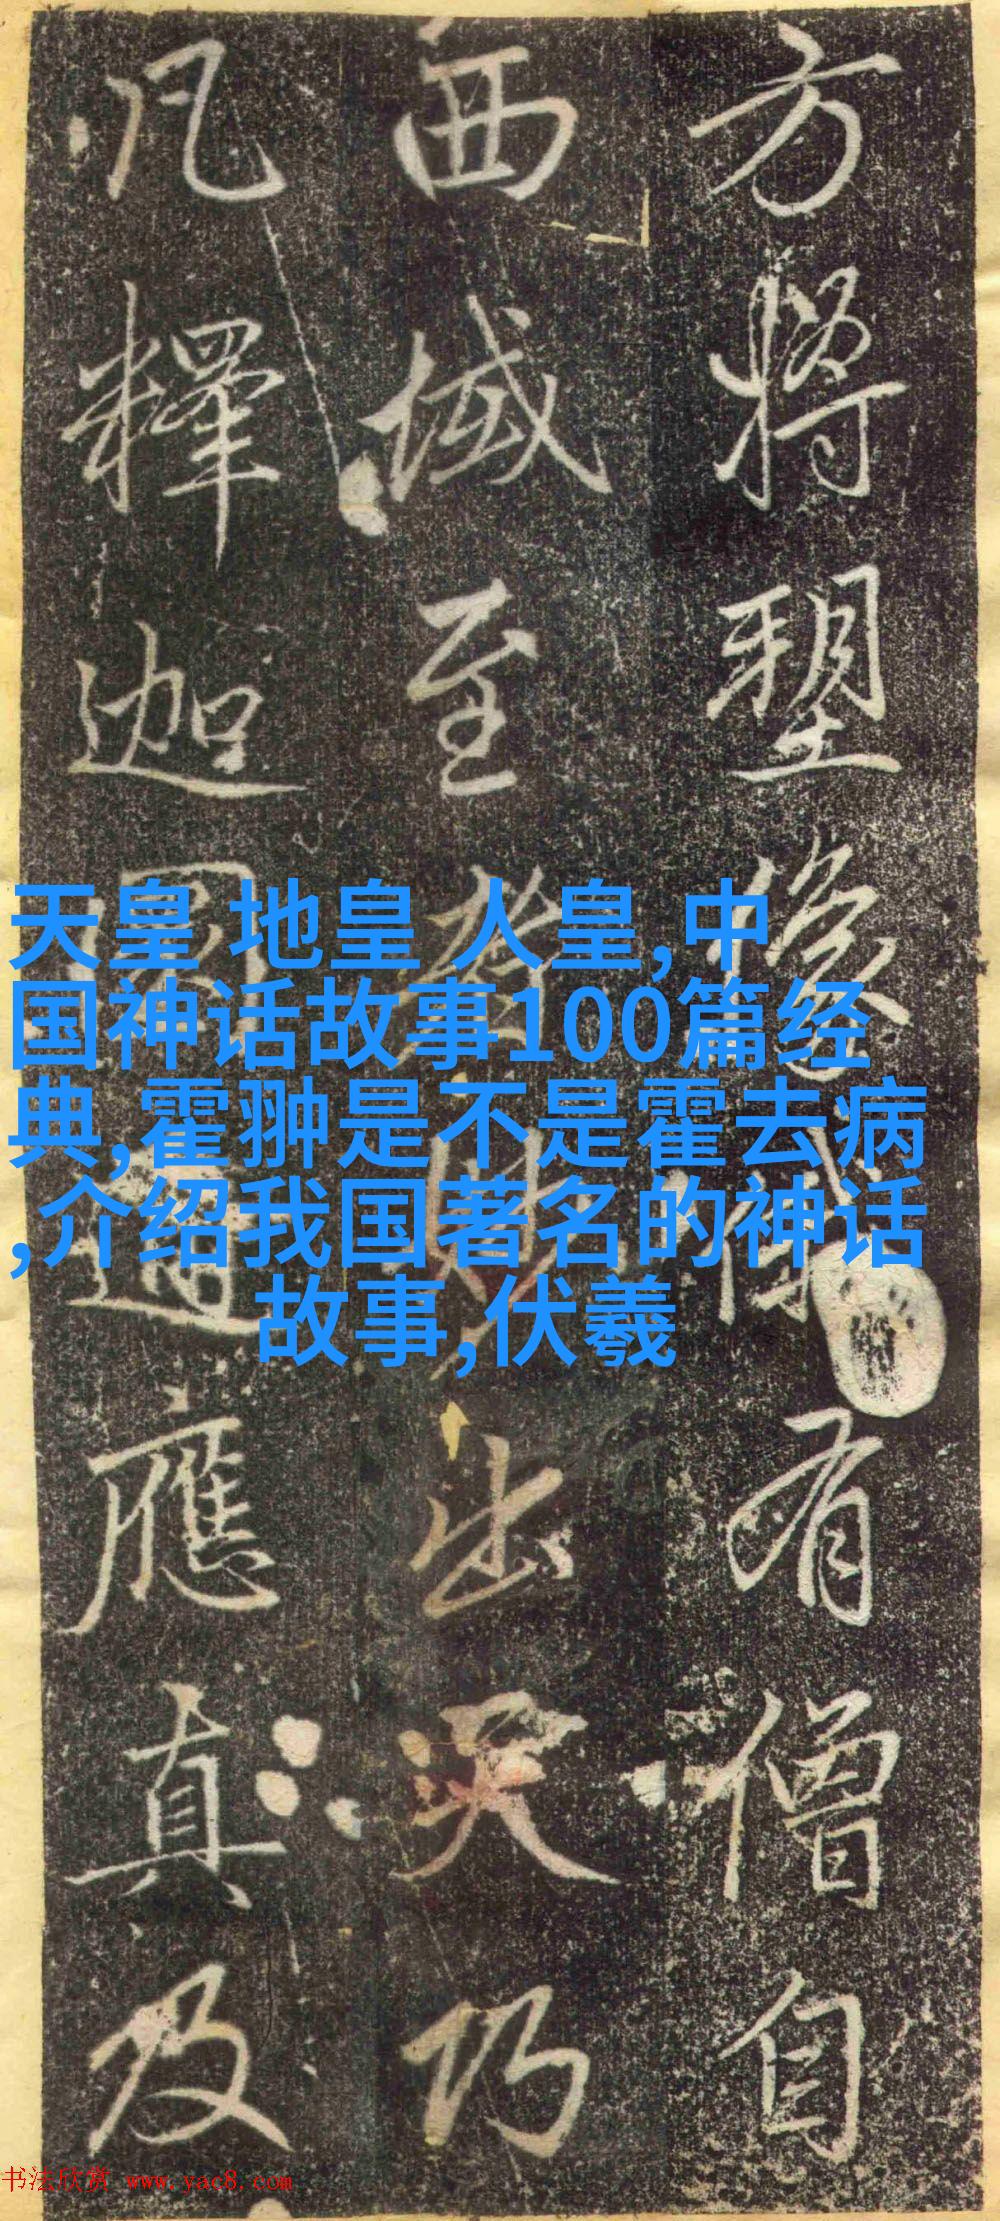 方將塑像有僧自
西域至出
凡釋迦應真及
天皇 地皇 人皇,中
国神话故事100篇经
典,霍翀是不是霍去病
,介绍我国著名的神话
故事,伏羲
书法欣赏 www.yac8.com